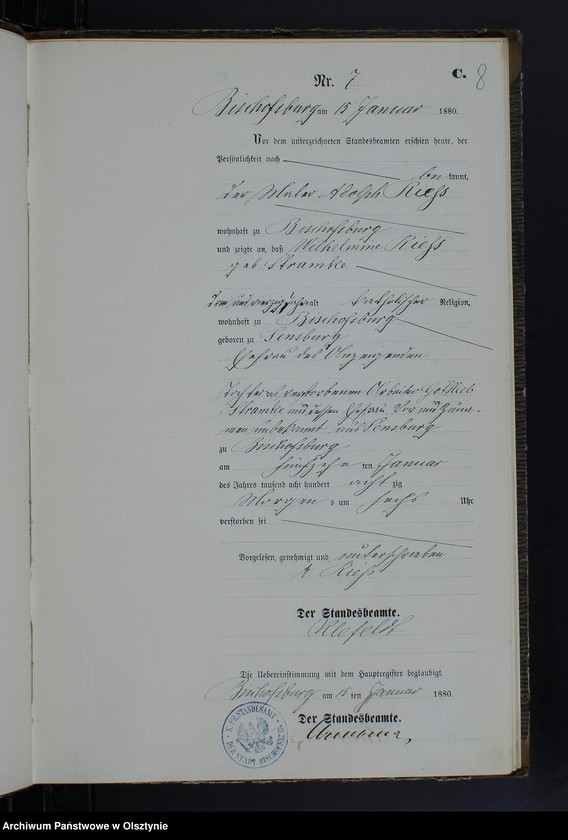 Nr. 7
C. 8
Bischofsburg am 15 Januar 1880.
Vor dem unterzeichneten Standesbeamten erschien heute, der
Persönlichkeit nach
be kannt,
der Maler Adolph Rieß
wohnhaft zu Bischofsburg
und zeigte an, daß Wilhelmine Rieß
geb Stramke
drei und vierzig Jahre alt katholischer Religion,
wohnhaft zu Bischofsburg
geboren zu Sensburg
Ehefrau des Anzeigenden
Tochter des verstorbenen Arbeiter Gottlieb
Stramke und dessen Ehefrau Vor und Zuna-
men unbekannt aus Sensburg
zu Bischofsburg
am fünfzehn ten Januar
des Jahres tausend acht hundert acht zig
Morgen s um sechs Uhr
verstorben sei
Vorgelesen, genehmigt und unterschrieben
A. Rieß
Der Standesbeamte.
Die Uebereinstimmung mit dem Hauptregister beglaubigt.
Bischofsburg am 15 ten Januar 1880.
Der Standesbeamte.
K. PR. STANDESAMT
DER STADT BISCHOFSBURG
Archiwum Państwowe w Olsztynie